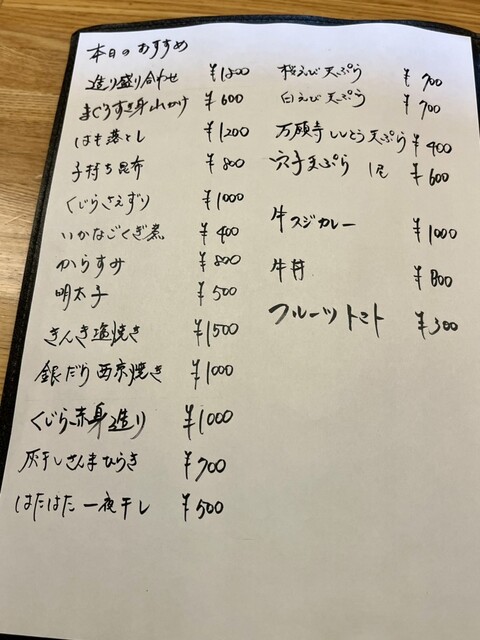 本日のおすすめ
造り盛り合わせ ¥1200
まぐろすき身山かけ ¥600
はも落とし ¥1200
子持ち昆布 ¥800
くじらさえずり ¥1000
いかなごくぎ煮 ¥400
からすみ ¥800
明太子 ¥500
きんき塩焼き ¥1500
銀だら西京焼き ¥1000
くじら赤身造り ¥1000
灰干しさんまひらき ¥700
はたはた一夜干し ¥500
桜えび天ぷら ¥700
白えび天ぷら ¥700
万願寺ししとう天ぷら ¥400
穴子天ぷら 1尾 ¥600
牛スジカレー ¥1000
牛丼 ¥800
フルーツトマト ¥300